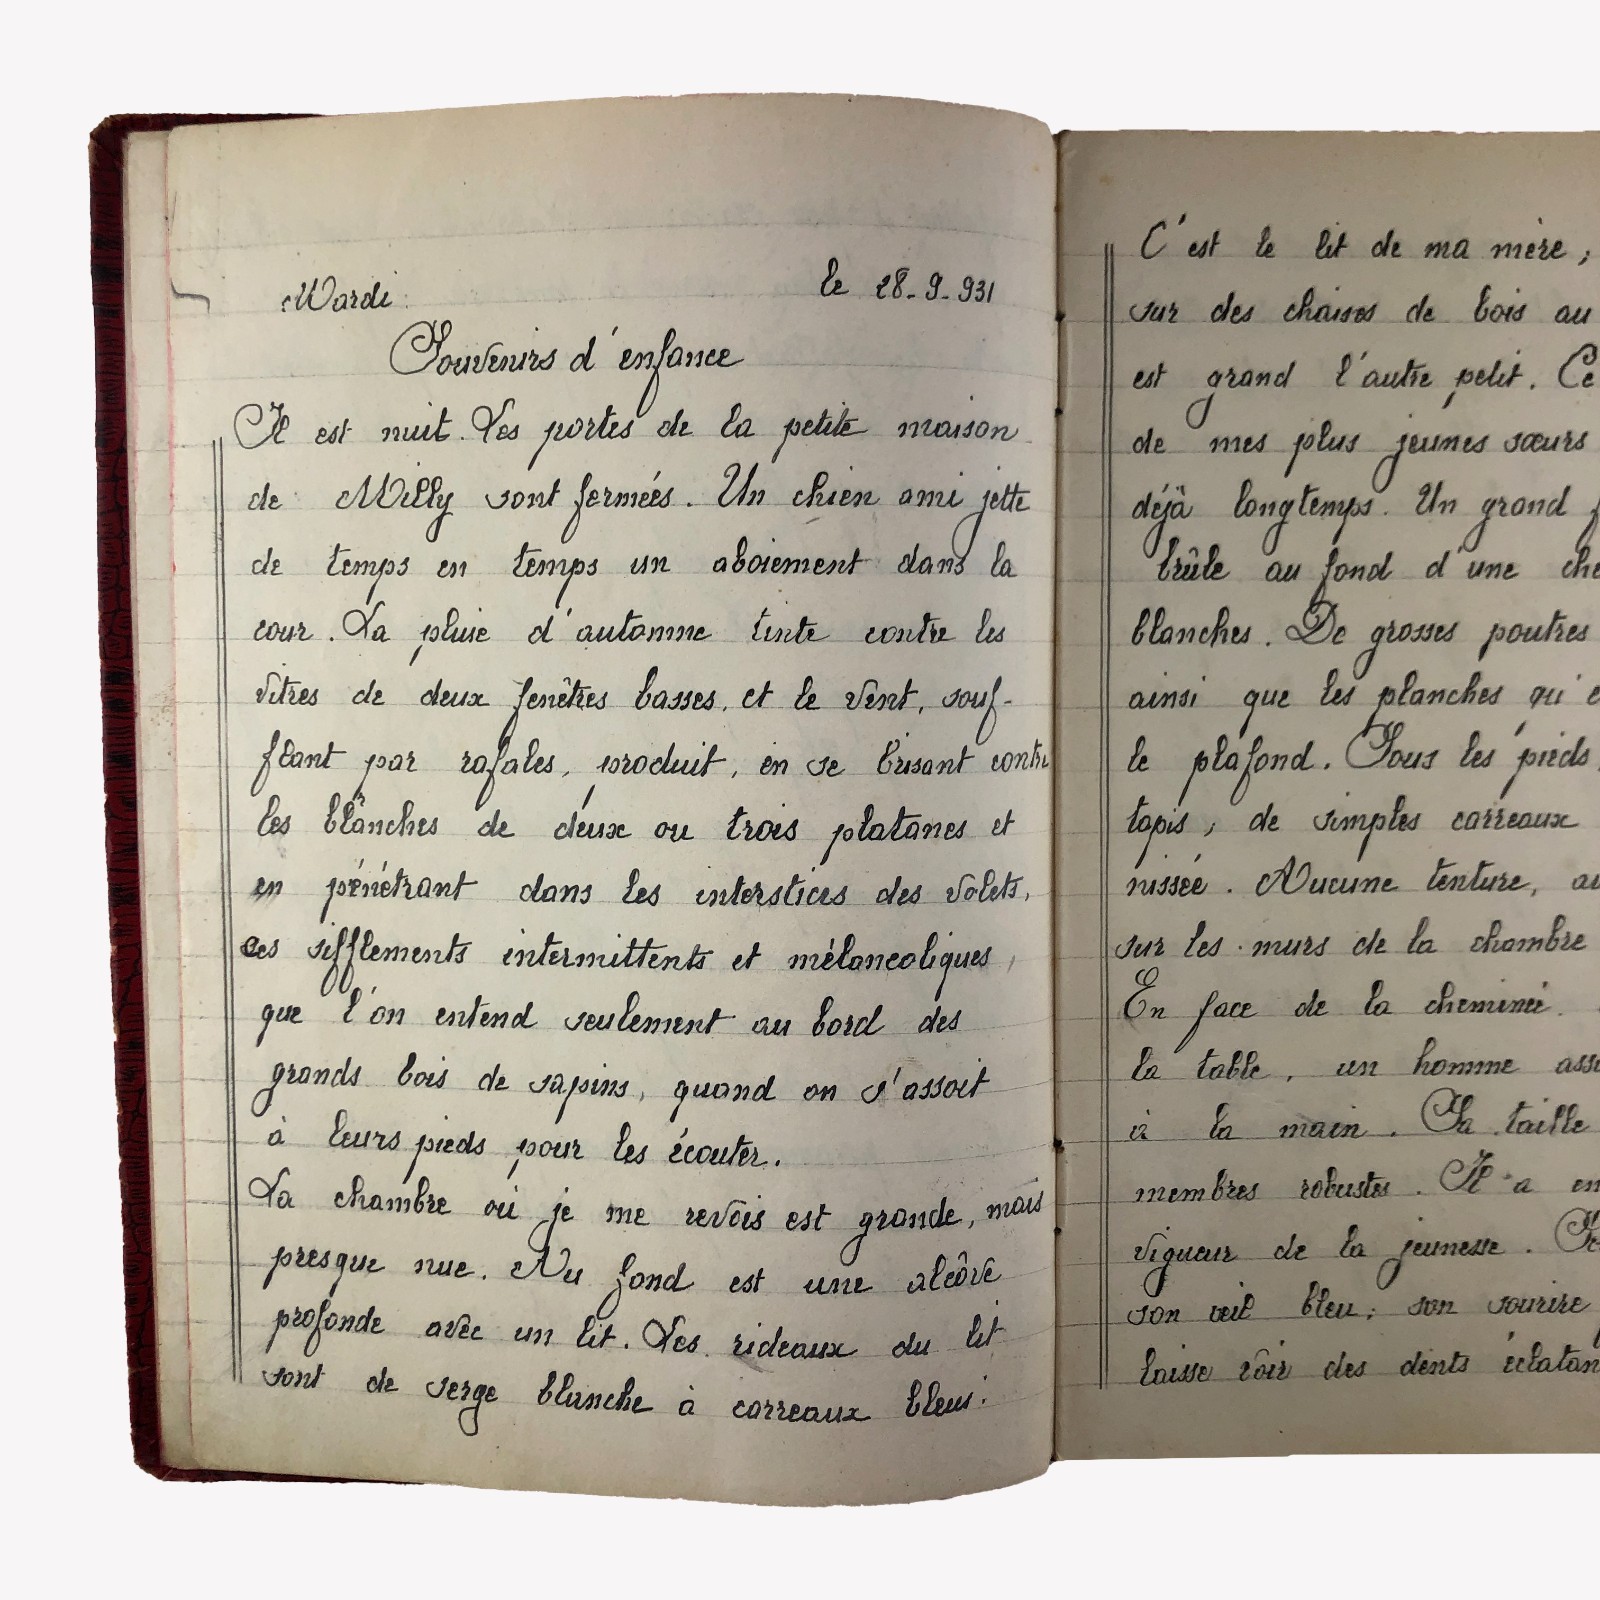 Mardi le 28-9-931
Souvenirs d'enfance
Il est nuit. Les portes de la petite maison
de Milly sont fermées. Un chien ami jette
de temps en temps un aboiement dans la
cour. La pluie d'automne tinte contre les
vitres de deux fenêtres basses, et le vent, souf-
flant par rafales, produit, en se brisant contre
les blanches de deux ou trois platanes et
en pénétrant dans les interstices des volets,
ces sifflements intermittents et mélancoliques,
que l'on entend seulement au bord des
grands bois de sapins, quand on s'assoit
à leurs pieds pour les écouter.
La chambre où je me revois est grande, mais
presque nue. Au fond est une alcôve
profonde avec un lit. Les rideaux du lit
sont de serge blanche à carreaux bleus.
C'est le lit de ma mère ;
sur des chaises de bois au
est grand l'autre petit. Ce
de mes plus jeunes sœurs
déjà longtemps. Un grand f
brûle au fond d'une che
blanches. De grosses poutres
ainsi que les planches qu'e
le plafond. Sous les pieds
tapis ; de simples carreaux
nissée. Aucune tenture, au
sur les murs de la chambre
En face de la cheminée.
la table, un homme assi
à la main. Sa taille
membres robustes. Il a en
vigueur de la jeunesse.
son œil bleu ; son sourire
laisse voir des dents éclatan